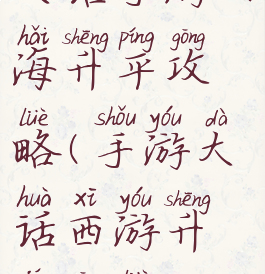 hǎi shēng píng gōng
海升平攻
lüè shǒu yóu dà
略(手游大
huà xī yóu shēng
话西游升